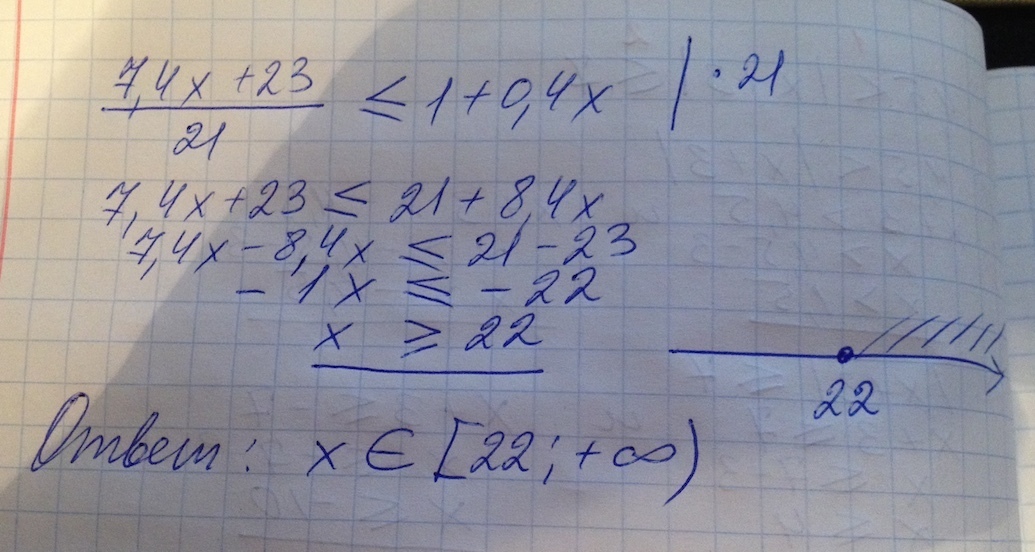 (7,4x + 23)/21 ≤ 1 + 0,4x | · 21
7,4x + 23 ≤ 21 + 8,4x
7,4x - 8,4x ≤ 21 - 23
- 1x ≤ - 22
x ≥ 22
22
Ответ: x ∈ [22; +∞)